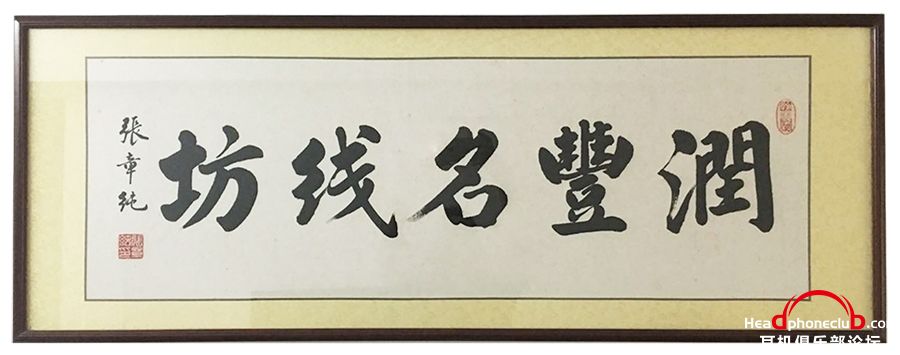 潤豐名线坊
張章純
HeadphonecluD.co
耳机俱乐部论坛